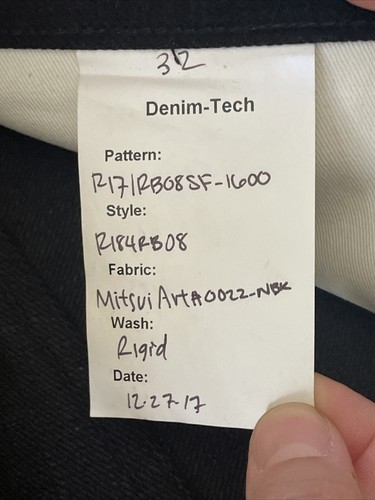 32
Denim-Tech
Pattern:
R17/RB08SF-1600
Style:
R184RB08
Fabric:
Mitsui ArtA0022-NBK
Wash:
Rigid
Date:
12-27-17